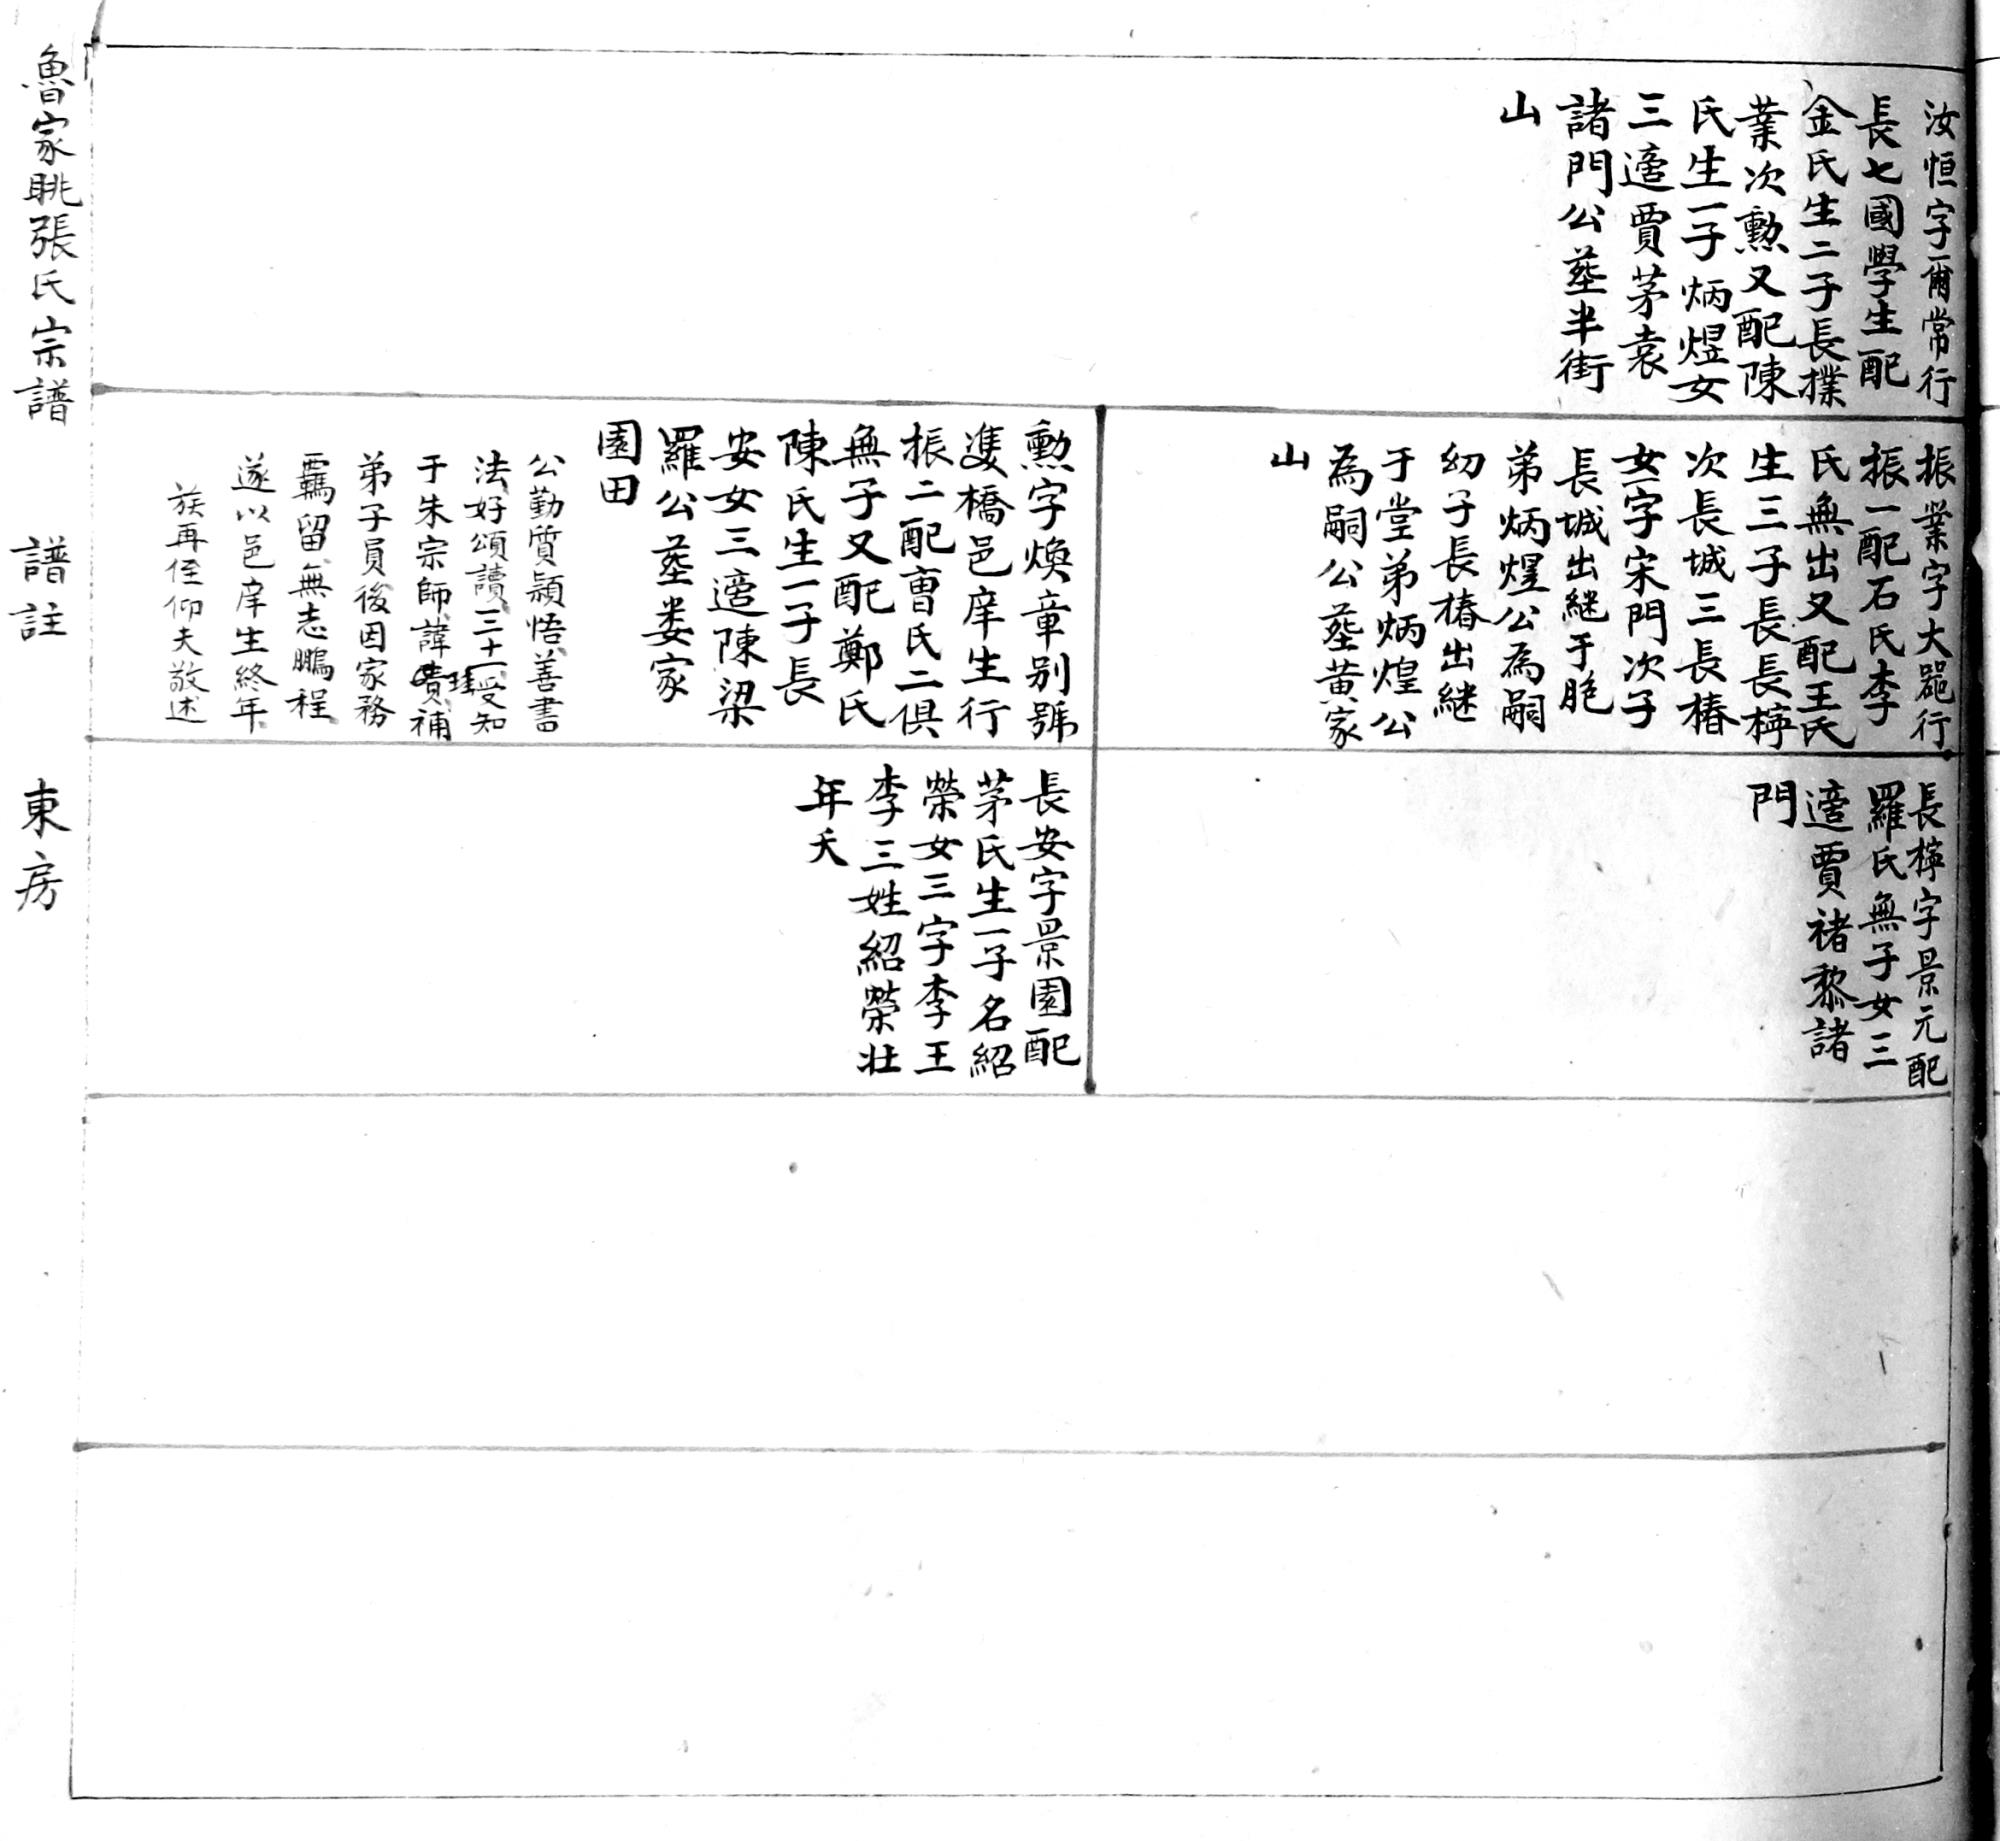 汝恒字爾常行
長七國學生配
金氏生二子長撲
業次勲又配陳
氏生一子炳煜女
三適賈茅袁
諸門公塟半街
山
振業字大噐行
振一配石氏李
氏無出又配王氏
生三子長長檸
次長城三長椿
女一字宋門次子
長城出継于胞
弟炳煜公為嗣
幼子長椿出継
于堂弟炳煌公
為嗣公塟黄家
山
勲字煥章别號
雙橋邑庠生行
振二配曺氏二俱
無子又配鄭氏
陳氏生一子長
安女三適陳梁
羅公塟娄家
園田
公勤質穎悟善書
法好頌讀三十一受知
于朱宗師諱珪補
弟子員後因家務
覊留無志鵬程
遂以邑庠生終年
族再侄仰夫敬述
長檸字景元配
羅氏無子女三
適賈褚黎諸
門
長安字景園配
茅氏生一子名紹
榮女三字李王
李三姓紹榮壮
年夭
魯家眺張氏宗譜
譜註
東房